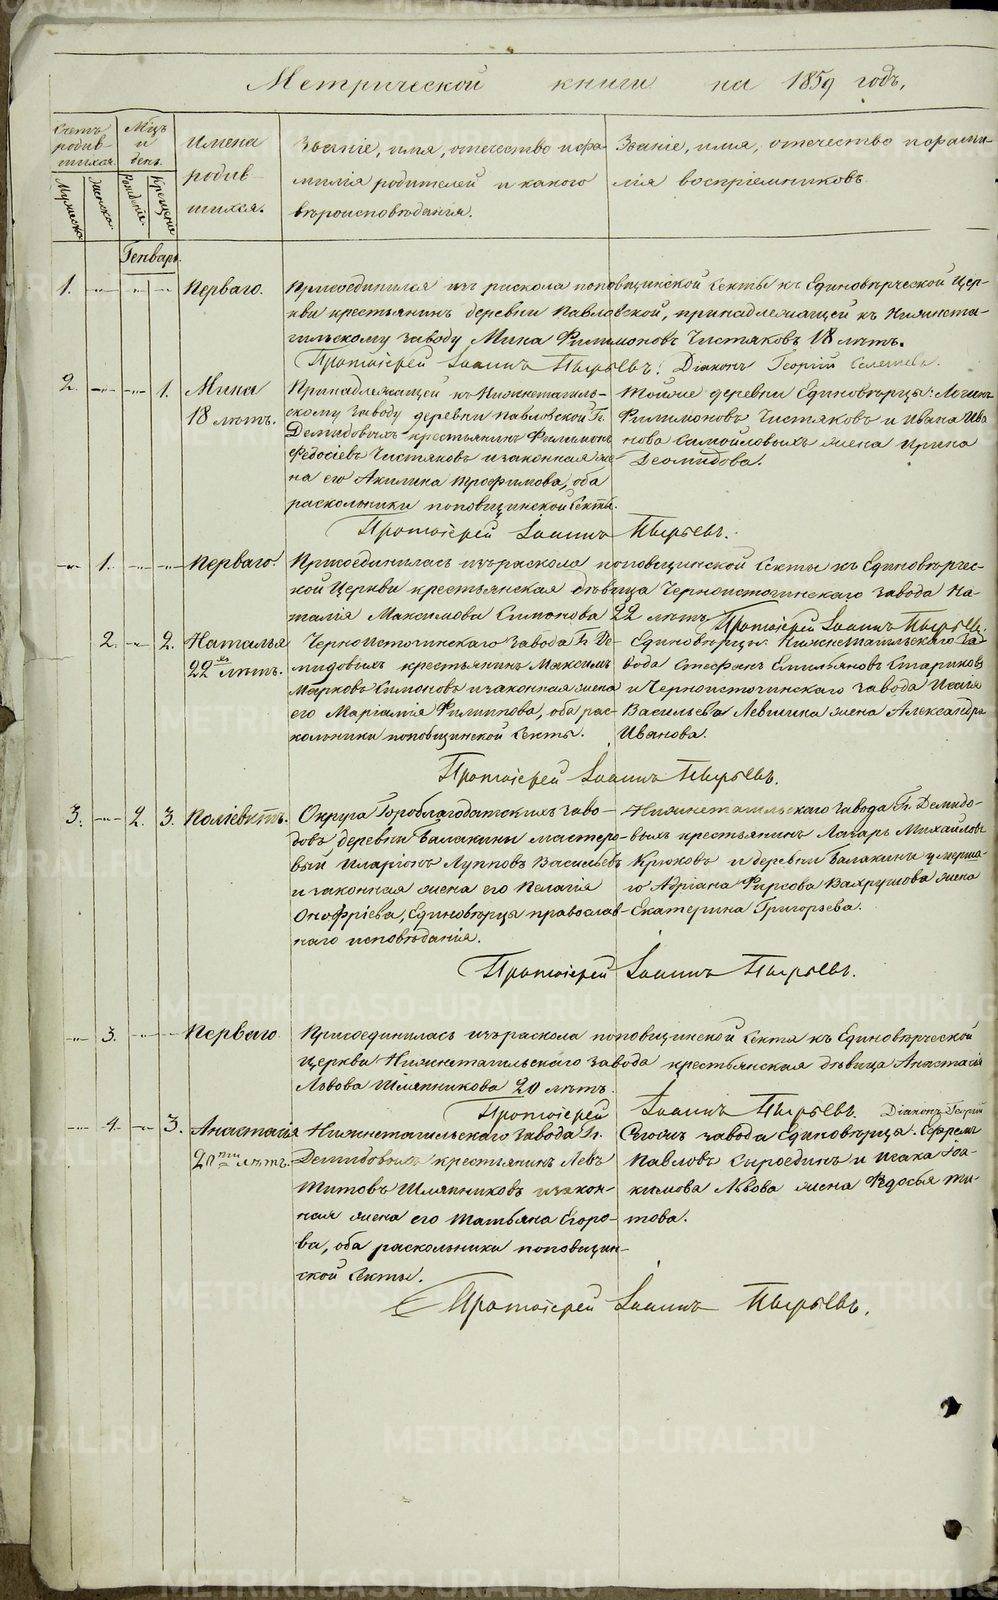 Метрической книги на 1859 годъ,
Счетъ родившихся.
Мужеска
Женска.
Мѣцъ и день.
Рожденія.
Крещенія
Имена родившихся.
Званіе, имя, отечество и фамилія родителей и какого вѣроисповѣданія.
Званіе, имя, отечество и фамилія воспріемниковъ.
Генварь.
1. Перваго. Присоединился изъ раскола поповщинской секты къ Единовѣрческой Цер-
кви крестьянинъ деревни Павловской, принадлежащей къ Нижнета-
гильскому заводу Мина Филимоновъ Чистяковъ 18 лѣтъ.
Протоіерей Іоаннъ Пырьевъ. Діаконъ Георгій
2. 1. Мина 18 лѣтъ.
Принадлежащей къ Нижнетагиль-
скому заводу деревни Павловской Гг.
Демидовыхъ крестьянинъ Филимонъ
Федосіевъ Чистяковъ и законная же-
на его Акилина Трофимова, оба
раскольники поповщинской секты.
Тойже деревни Единовѣрцы: Логинъ
Филимоновъ Чистяковъ и Ивана Ива
нова Самойловыхъ жена Ирина
Деомидова.
Протоіерей Іоаннъ Пырьевъ.
1. Перваго. Присоединилась изъ раскола поповщинской секты къ Единовѣрчес-
кой Церкви крестьянская дѣвица Черноисточинскаго завода На-
талія Максимова Симонова 22 лѣтъ. Протоіерей Іоаннъ Пырьевъ.
2. 2. Наталья 22хъ лѣтъ.
Черноисточинскаго завода Гг. Де-
мидовыхъ крестьянинъ Максимъ
Марковъ Симоновъ и законная жена
его Маріамія Филиппова, оба рас-
кольники поповщинской секты.
Единовѣрцы: Нижнетагильскаго за-
вода Стефанъ Емильяновъ Стариковъ
и Черноисточинскаго завода Исаія
Васильева Левшина жена Александра
Иванова.
Протоіерей Іоаннъ Пырьевъ.
3. 2. 3. Поліевктъ.
Округа Гороблагодатскихъ заво-
довъ деревни Балакины мастеро-
вый Иларіонъ Лупповъ Васильевъ
и законная жена его Пелагія
Онофріева, Единовѣрцы православ-
наго исповѣданія.
Нижнетагильскаго завода Гг. Демидо-
выхъ крестьянинъ Лазарь Михайловъ
Крюковъ и деревни Балакины умерша-
го Адріана Фирсова Вахрушова жена
Екатерина Григорьева.
Протоіерей Іоаннъ Пырьевъ.
3. Перваго. Присоединилась изъ раскола поповщинской секты къ Единовѣрческой
церкви Нижнетагильскаго завода крестьянская дѣвица Анастасія
Львова Шляпникова 20 лѣтъ.
Протоіерей Іоаннъ Пырьевъ. Діаконъ Георгій
4. 3. Анастасія 20ти лѣтъ.
Нижнетагильскаго завода Гг.
Демидовыхъ крестьянинъ Левъ
Титовъ Шляпниковъ и закон-
ная жена его Татьяна Егоро-
ва, оба раскольники поповщин-
ской секты.
Сегожъ завода Единовѣрцы: Ефремъ
Павловъ Сыроединъ и Исака Іоа-
кимова Львова жена Федосья Ти-
това.
Протоіерей Іоаннъ Пырьевъ.
METRIKI.GASO-URAL.RU